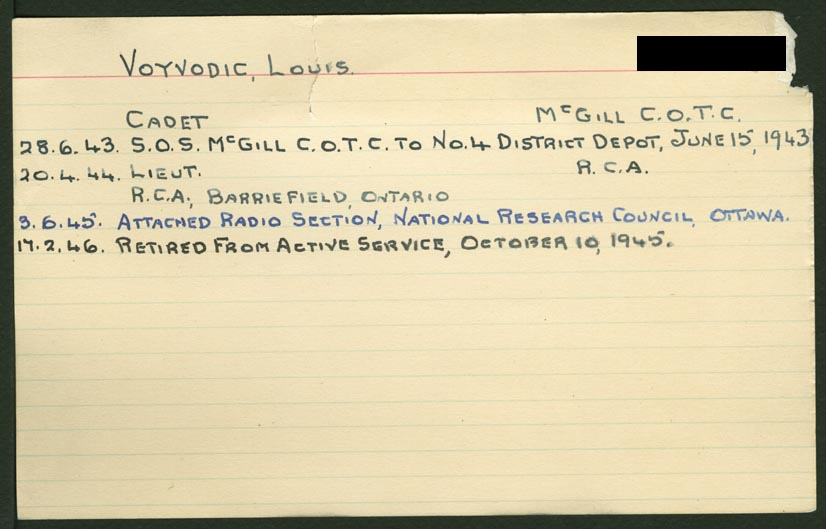 VOYVODIC, LOUIS.
CADET McGILL C.O.T.C.
28.6.43. S.O.S. McGILL C.O.T.C. TO NO.4 DISTRICT DEPOT, JUNE 15, 1943
20.4.44. LIEUT. R.C.A.
R.C.A., BARRIEFIELD, ONTARIO
9.6.45. ATTACHED RADIO SECTION, NATIONAL RESEARCH COUNCIL, OTTAWA.
17.2.46. RETIRED FROM ACTIVE SERVICE, OCTOBER 10, 1945.